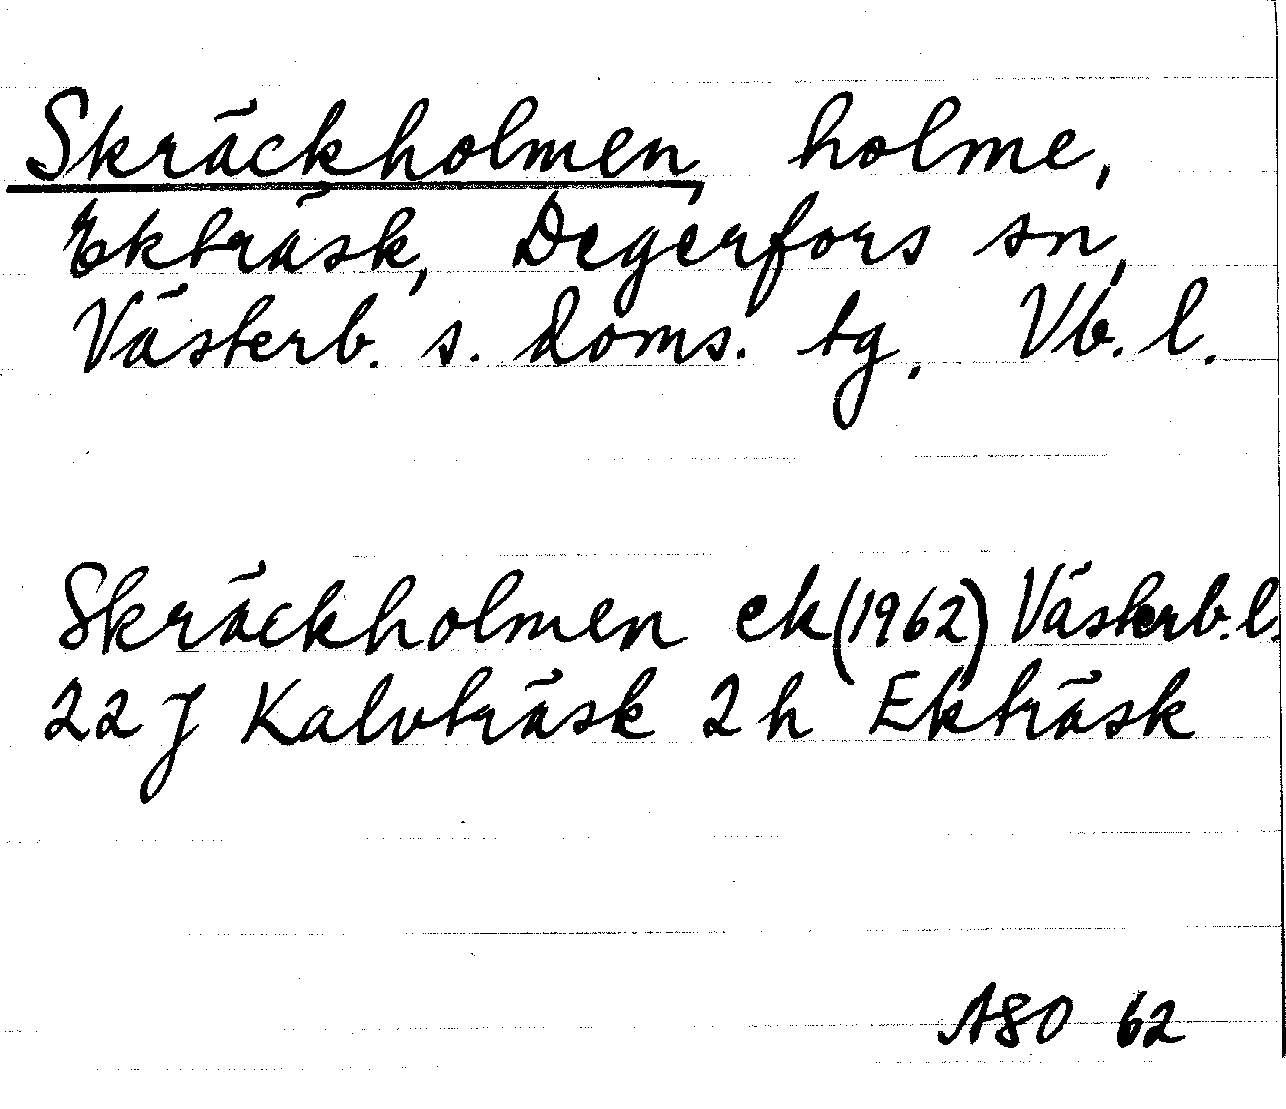 Skräckholmen, holme,
Ekträsk, Degerfors sn,
Västerb. s. doms. tg. Vb. l.
Skräckholmen ek (1962) Västerb. l.
22 J Kalvträsk 2 h Ekträsk
ASO 62